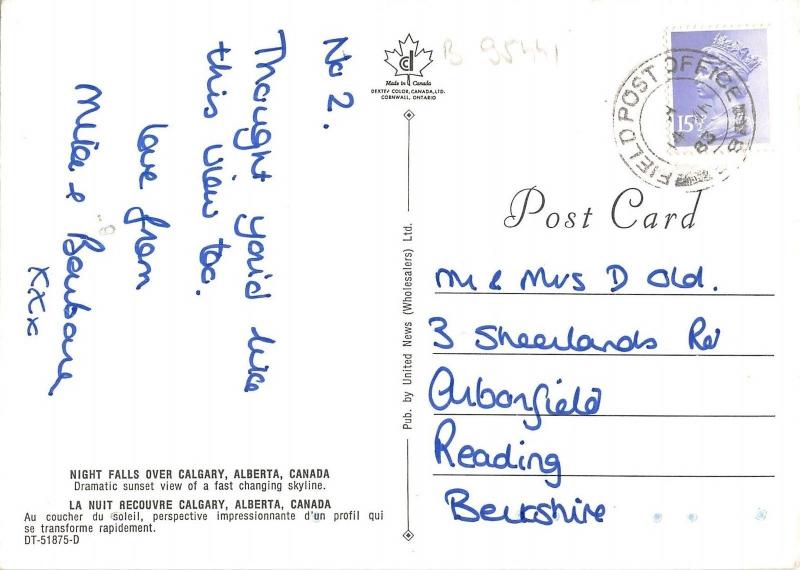 No 2.
Thought you'd like
this view too.
love from
Mike & Barbara
xxx
NIGHT FALLS OVER CALGARY, ALBERTA, CANADA
Dramatic sunset view of a fast changing skyline.
LA NUIT RECOUVRE CALGARY, ALBERTA, CANADA
Au coucher du soleil, perspective impressionnante d'un profil qui
se transforme rapidement.
DT-51875-D
Made in Canada
DEXTER COLOR, CANADA, LTD.
CORNWALL, ONTARIO
Pub. by United News (Wholesalers) Ltd.
B 95441
FIELD POST OFFICE
83
15½
Post Card
Mr & Mrs D Old.
3 Sheerlands Rd
Arborfield
Reading
Berkshire